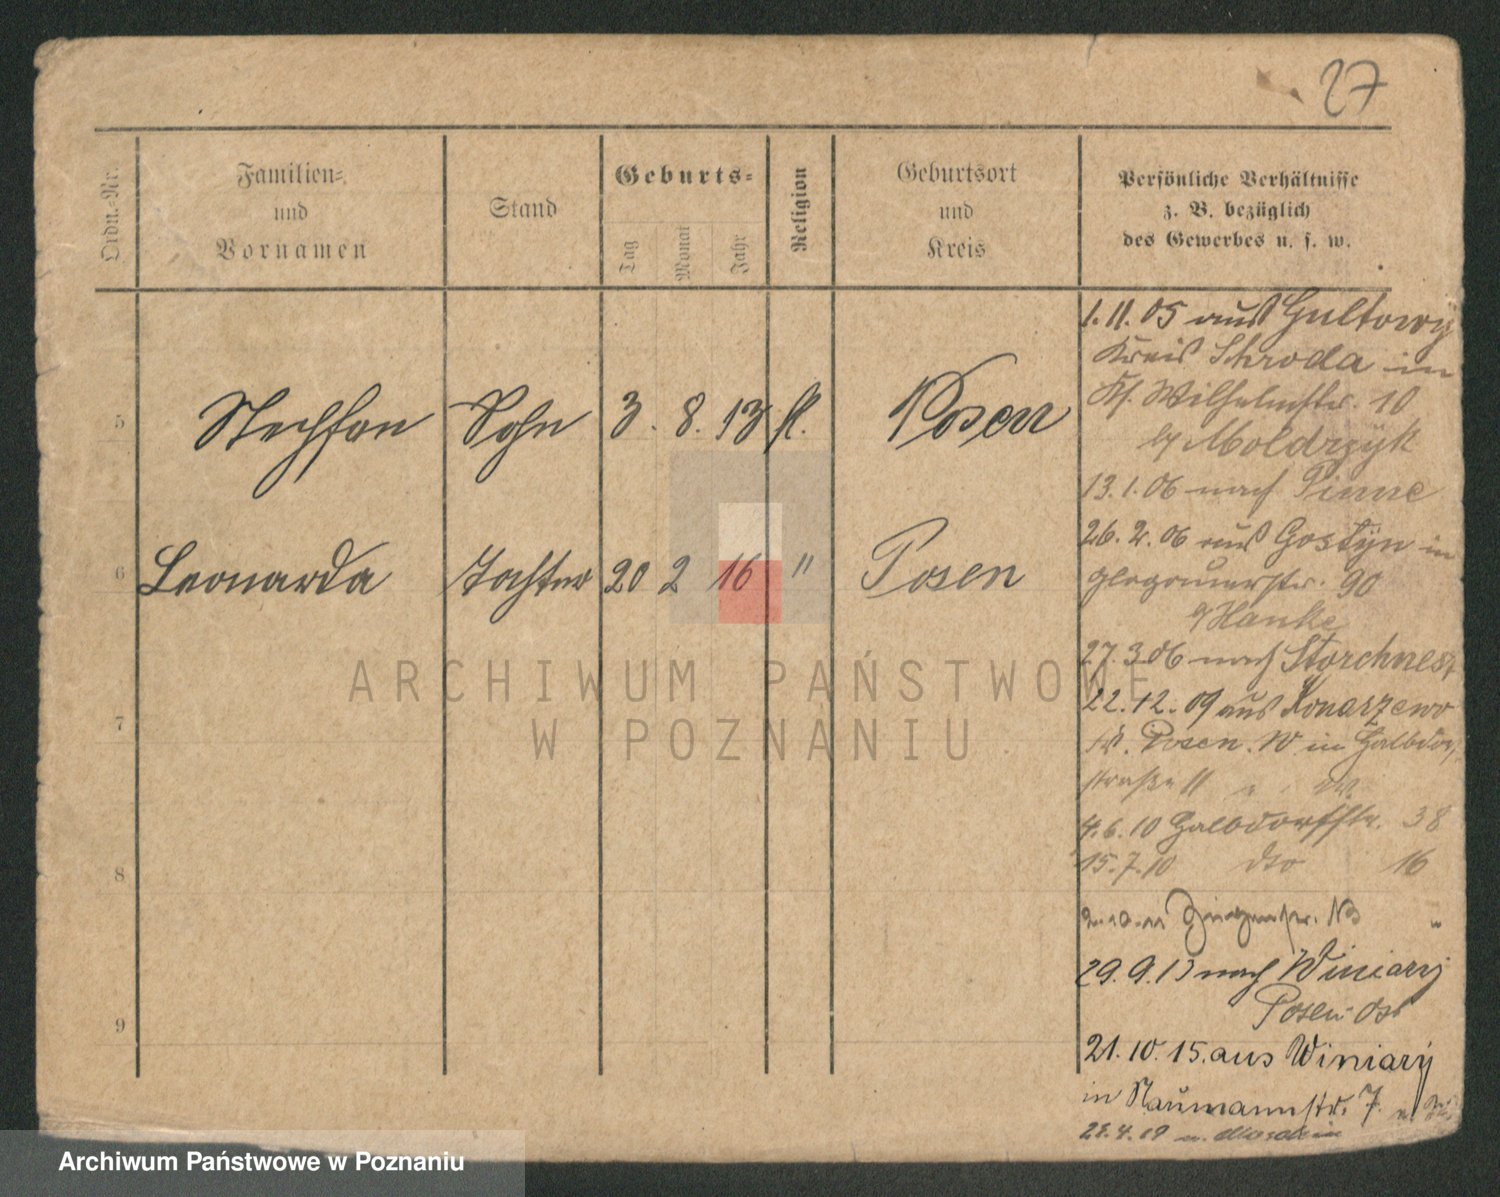 27
Ordn.-Nr.
Familien-
und
Vornamen
Stand
Geburts-
Tag
Monat
Jahr
Religion
Geburtsort
und
Kreis
Persönliche Verhältnisse
z. B. bezüglich
des Gewerbes u. s. w.
5 Stephan Sohn 3. 8. 13 k. Posen
6 Leonarda Tochter 20 2 16 " Posen
7
8
9
1.11.05 aus Gultowy
Kreis Schroda in
Wilhelmstr. 10
Moldrzyk
13.1.06 nach Pinne
26.2.06 aus Gostyn in
Glogauerstr. 90
Hanke
27.3.06 nach Storchnest
22.12.09 aus Konarzewo
Kr. Posen. W in Halbdorf
straße 11
4.6.10 Halbdorfstr. 38
15.7.10 dto 16
29.9.13 nach Winiary
Posen-Ost
21.10.15. aus Winiary
in Naumannstr. 7
ARCHIWUM PAŃSTWOWE
W POZNANIU
Archiwum Państwowe w Poznaniu